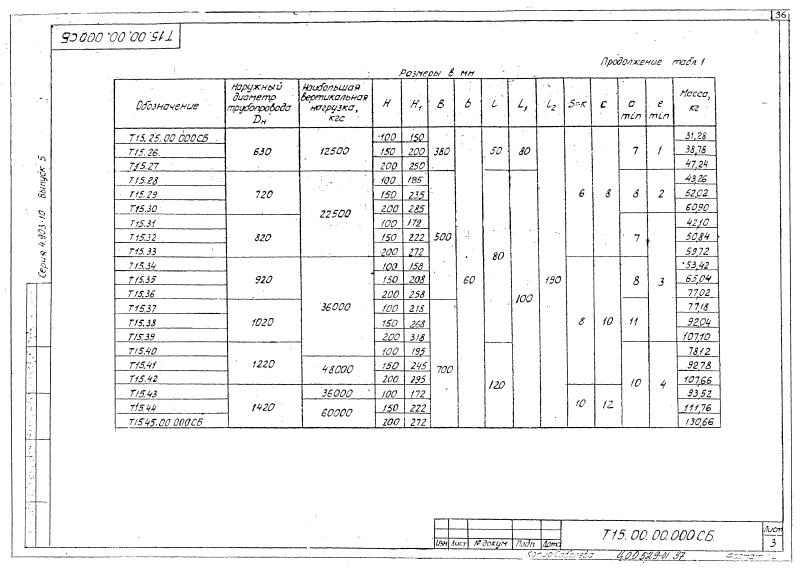 36
Т15.00.00.000СБ
Продолжение табл 1
Размеры в мм
Обозначение | Наружный диаметр трубопровода Dн | Наибольшая вертикальная нагрузка, кгс | H | H1 | B | b | l | L1 | l2 | S=K | c | a min | e min | Масса, кг
Т15.25.00 000СБ | 630 | 12500 | 100 | 150 | 380 | 60 | 50 | 80 | 190 | 6 | 8 | 7 | 1 | 31,28
Т15.26 | 150 | 200 | 38,78
Т15.27 | 200 | 250 | 47,24
Т15.28 | 720 | 22500 | 100 | 185 | 500 | 80 | 100 | 8 | 2 | 43,26
Т15.29 | 150 | 235 | 52,02
Т15.30 | 200 | 285 | 60,90
Т15.31 | 820 | 100 | 172 | 7 | 3 | 42,10
Т15.32 | 150 | 222 | 50,84
Т15.33 | 200 | 272 | 59,72
Т15.34 | 920 | 36000 | 100 | 158 | 8 | 10 | 8 | 53,42
Т15.35 | 150 | 208 | 65,04
Т15.36 | 200 | 258 | 77,02
Т15.37 | 1020 | 100 | 218 | 700 | 11 | 77,18
Т15.38 | 150 | 268 | 92,04
Т15.39 | 200 | 318 | 107,10
Т15.40 | 1220 | 100 | 195 | 120 | 10 | 4 | 78,12
Т15.41 | 48000 | 150 | 245 | 92,78
Т15.42 | 200 | 295 | 107,66
Т15.43 | 1420 | 36000 | 100 | 172 | 10 | 12 | 93,52
Т15.44 | 60000 | 150 | 222 | 111,76
Т15.45.00 000СБ | 200 | 272 | 130,66
Серия 4.903-10 Выпуск 5
Изм Лист № докум Подп Дата
Т15.00.00.000СБ
Лист
3
Копир 
Ц00529-01 37
Формат